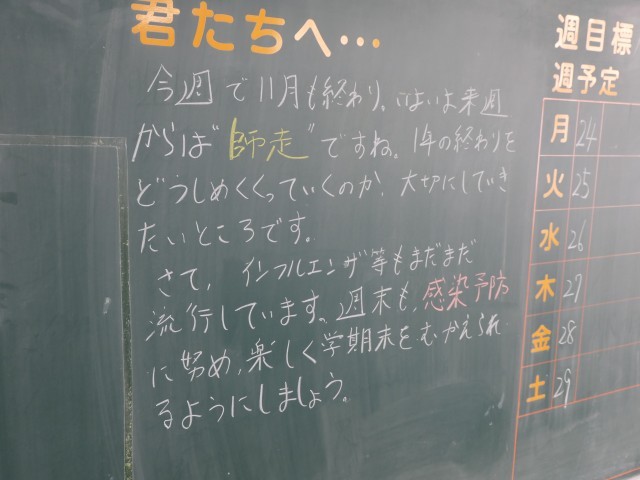 君たちへ…
今週で11月も終わり。いよいよ来週
からは"師走"ですね。1年の終わりを
どうしめくくっていくのか、大切にしていき
たいところです。
さて、インフルエンザ等もまだまだ
流行しています。週末も、感染予防
に努め、楽しく学期末をむかえられ
るようにしましょう。
週目標
週予定
月 24
火 25
水 26
木 27
金 28
土 29